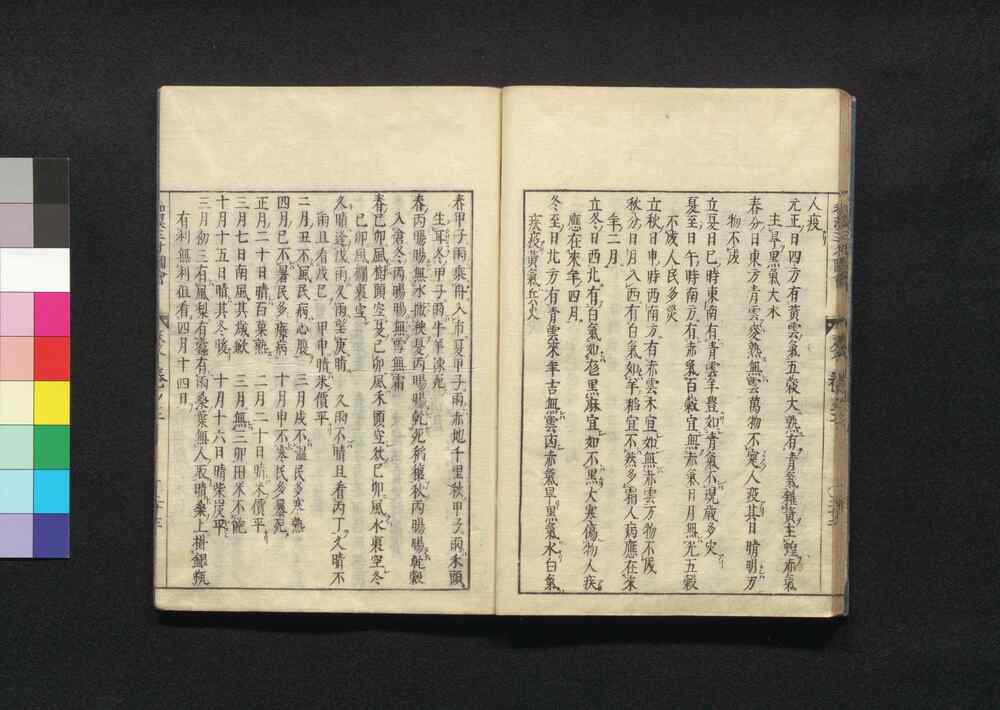 人疫
元正日四方有黄雲氣五穀大熟有青氣雜黄主蝗赤氣
主旱黒氣大水
春分日東方青雲麥熟無雲萬物不實人疫其日晴明万
物不成
立夏日巳時東南有青雲年豊如青氣不現歳多火
夏至日午時南方有赤氣百穀宜無赤氣日月無光五穀
不成人民多災
立秋日申時西南方有赤雲禾宜如無赤雲万物不成
秋分日月入西有白氣如羊稻宜不然多霜人病應在來
年二月
立冬日西北有白氣如色黒麻宜如不黒大寒傷物人疾
應在來年四月
冬至日北方有青雲來年吉無雲凶赤氣旱黒氣水白氣
疾疫黄氣
春甲子雨乘舟入市夏甲子雨赤地千里秋甲子雨禾頭
生耳冬甲子雨牛羊凍死
春丙暘暘無水撒秧夏丙暘暘乾死秋丙暘暘乾穀
入倉冬丙暘暘無雪無霜
春己卯風樹頭空夏己卯風禾頭空秋己卯風水裏空冬
己卯風欄裏空
久晴逢戊雨久雨望庚晴　久雨不晴且看丙丁久晴不
雨且看戊己　甲申晴米價平
二月丑不風民病心腹　三月戌不温民多寒熱
四月巳不暑民多瘴病　十月申不寒民多暴死
正月二十日晴百菓熟　二月二十日晴米價平
三月七日南風其歳歉　三月無三卯田米不飽
十月十五日晴其冬暖　十月十六日晴柴炭平
三月初三有風梨有蠧有雨桑葉無人取晴桑上掛銀瓶
有利無利但看四月十四日